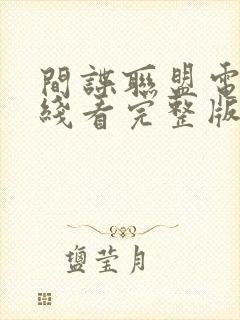 間諜聯盟電
綫看完整版
鹽莹月